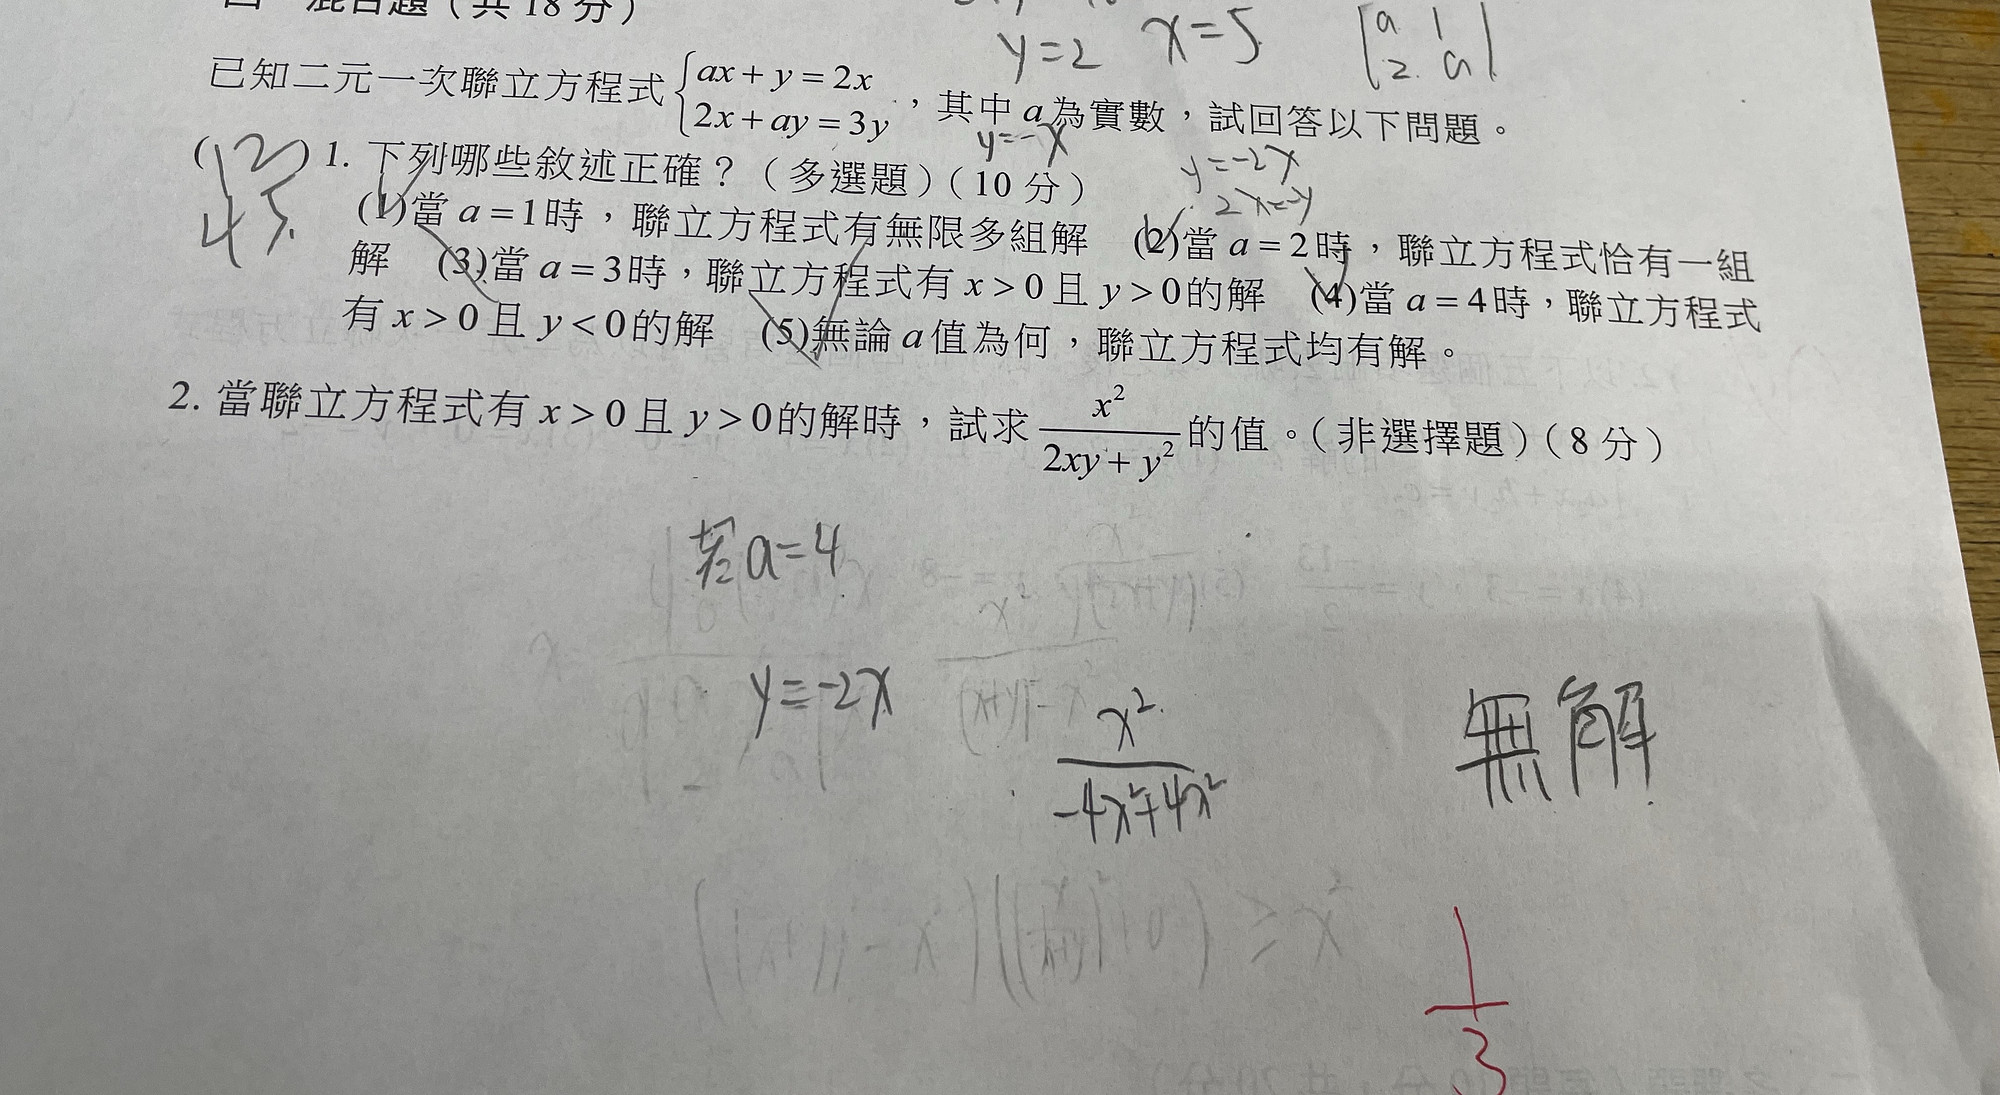 四、混合題（共 18 分）
y=2 x=5
a 1
2 a
已知二元一次聯立方程式 { ax + y = 2x
2x + ay = 3y ，其中 a 為實數，試回答以下問題。
y=-x
y=-2x
2x=-y
(12) 1. 下列哪些敘述正確？（多選題）（10 分）
45
(1)當 a = 1 時，聯立方程式有無限多組解 (2)當 a = 2 時，聯立方程式恰有一組
解 (3)當 a = 3 時，聯立方程式有 x > 0 且 y > 0 的解 (4)當 a = 4 時，聯立方程式
有 x > 0 且 y < 0 的解 (5)無論 a 值為何，聯立方程式均有解。
2. 當聯立方程式有 x > 0 且 y > 0 的解時，試求 x²/(2xy + y²) 的值。（非選擇題）（8 分）
若 a=4
y=-2x
x²
-4x²+4x²
無解
1
3